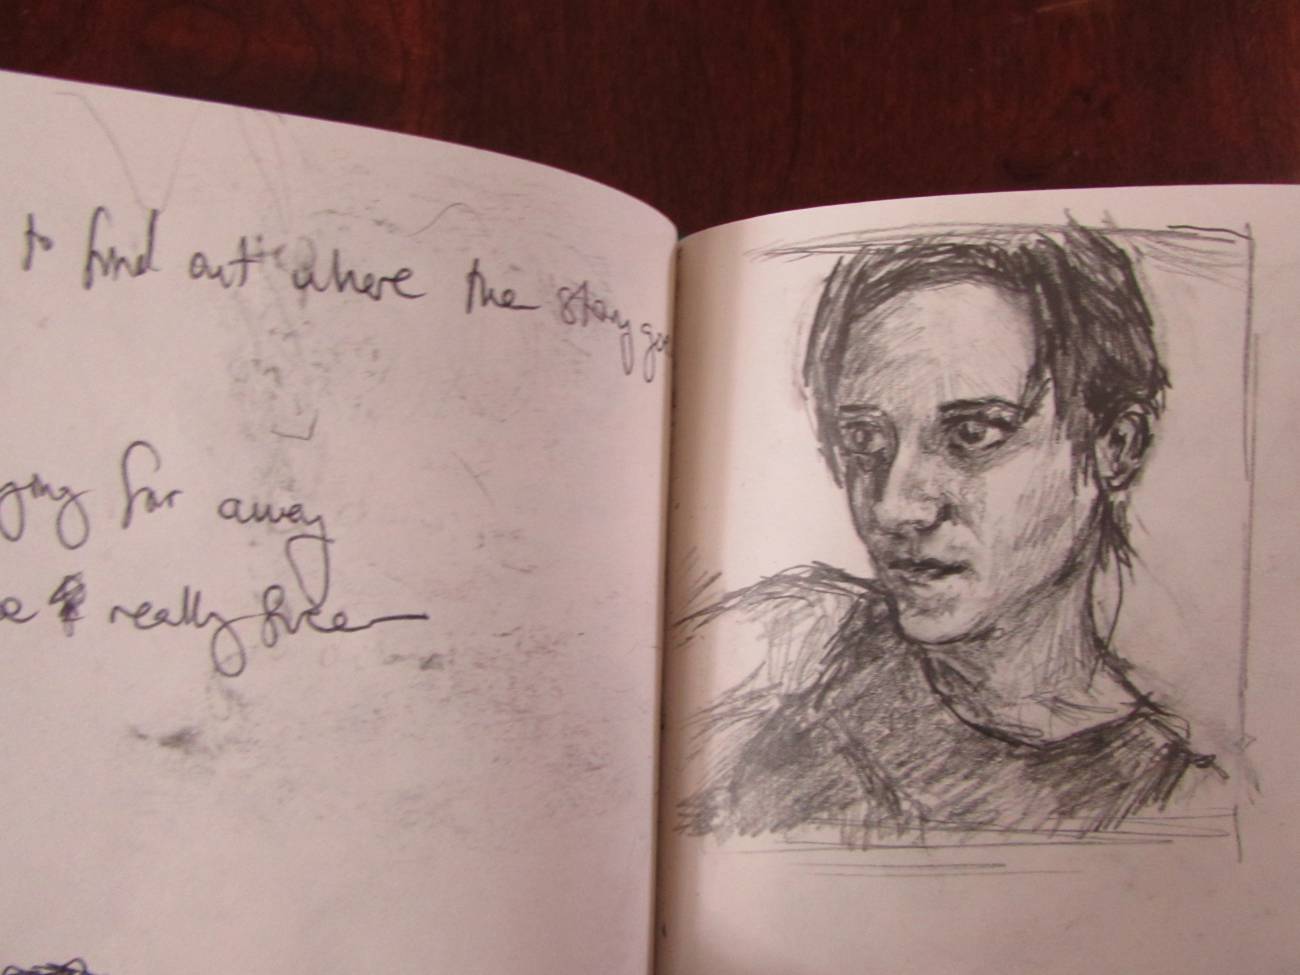 to find out where the story goes
ying far away
really free